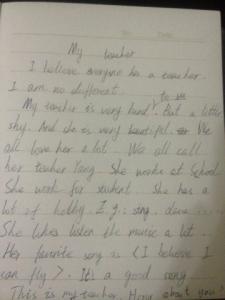 My teacher
I believe everyone has a teacher.
I am no different.
to us
My teacher is very kind. But a little
shy. And she is very beautiful. We
all love her a lot. We all call
her teacher Yang. She works at School
She work for student. she has a
lot of hobby. E.g: sing, dance
She likes listen the music a lot.
Her favorite song is 《I believe I
can fly》. It's a good song.
This is my teacher. How about you?